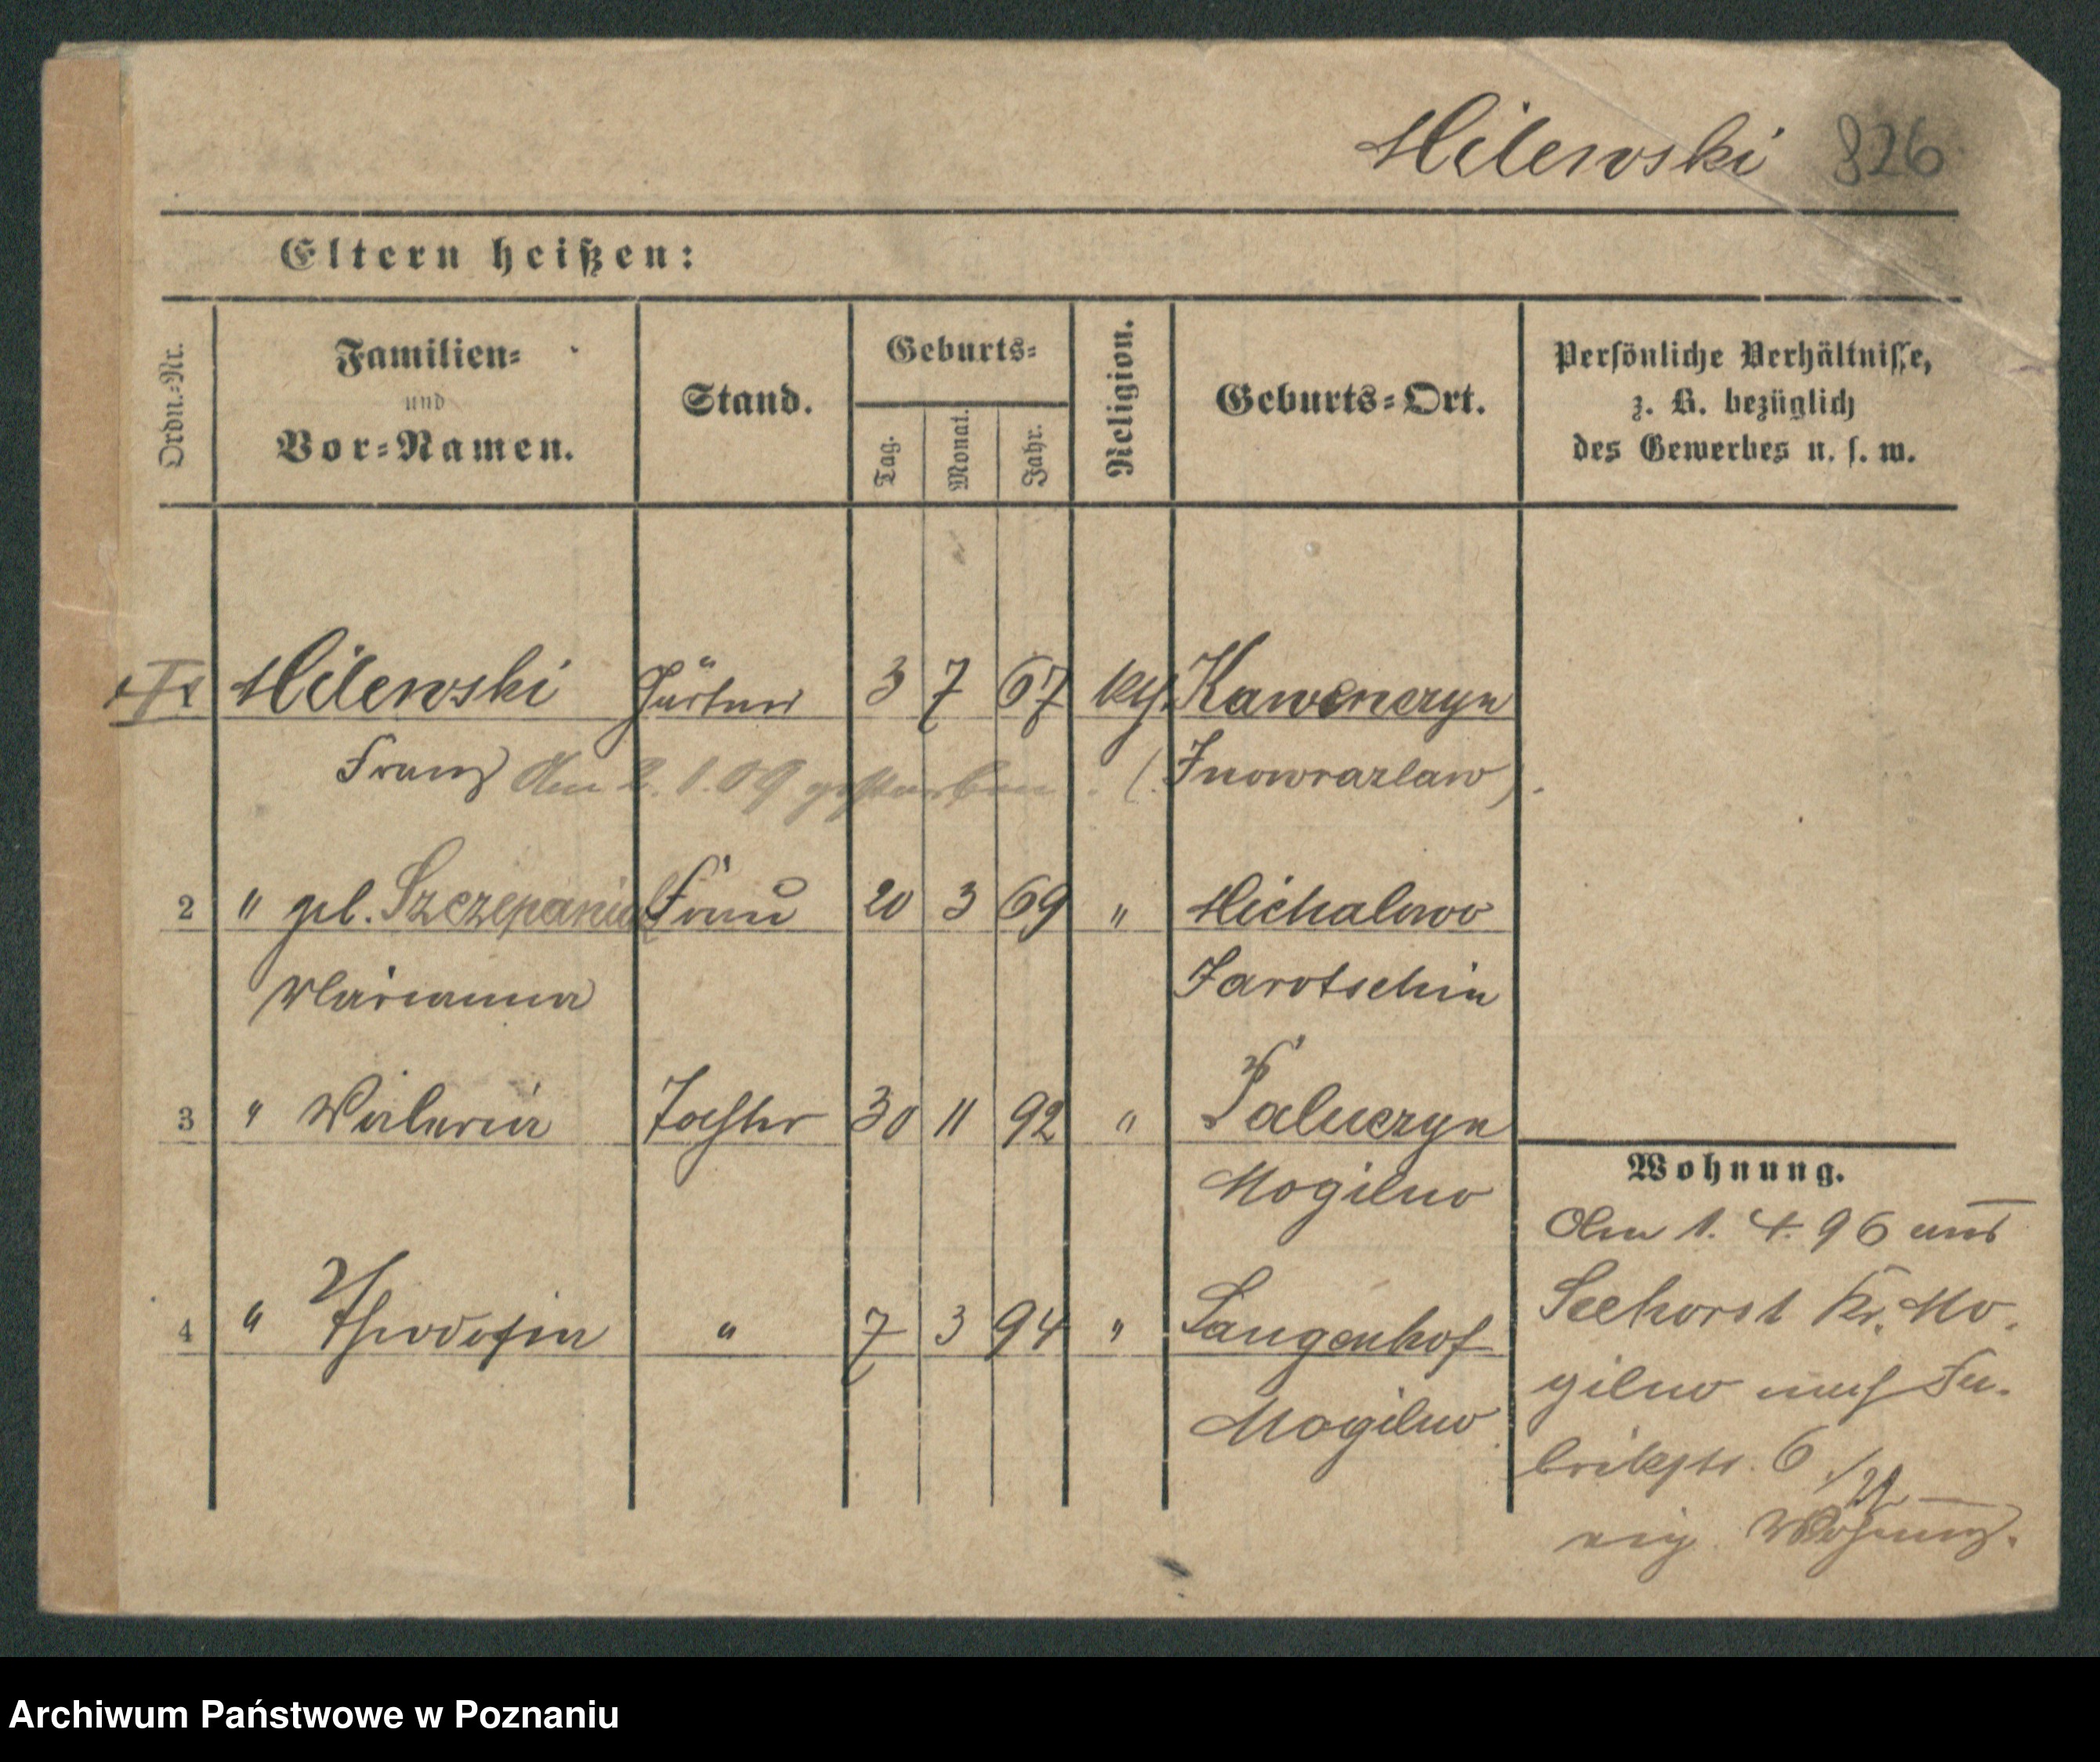 Milewski 826
Eltern heißen:
Ordn.=Nr.
Familien=
und
Vor=Namen.
Stand.
Geburts=
Tag.
Monat.
Jahr.
Religion.
Geburts=Ort.
Persönliche Verhältnisse,
z. B. bezüglich
des Gewerbes u. s. w.
Milewski Gärtner 3 7 67 Kawenczyn
Franz Am 2.1.09 gestorben. (Inowrazlaw).
2 " geb. Szczepaniak Frau 20 3 69 " Michalowo
Marianna Jarotschin
3 " Waleria Tochter 30 11 92 " Paluczyn
Mogilno
4 " Theodosia " 7 3 94 " Langenhof
Mogilno
Wohnung.
Am 1. 4. 96 aus
Seehorst Kr. Mo-
gilno nach Fa-
brikstr. 6
eig. Wohnung.
Archiwum Państwowe w Poznaniu